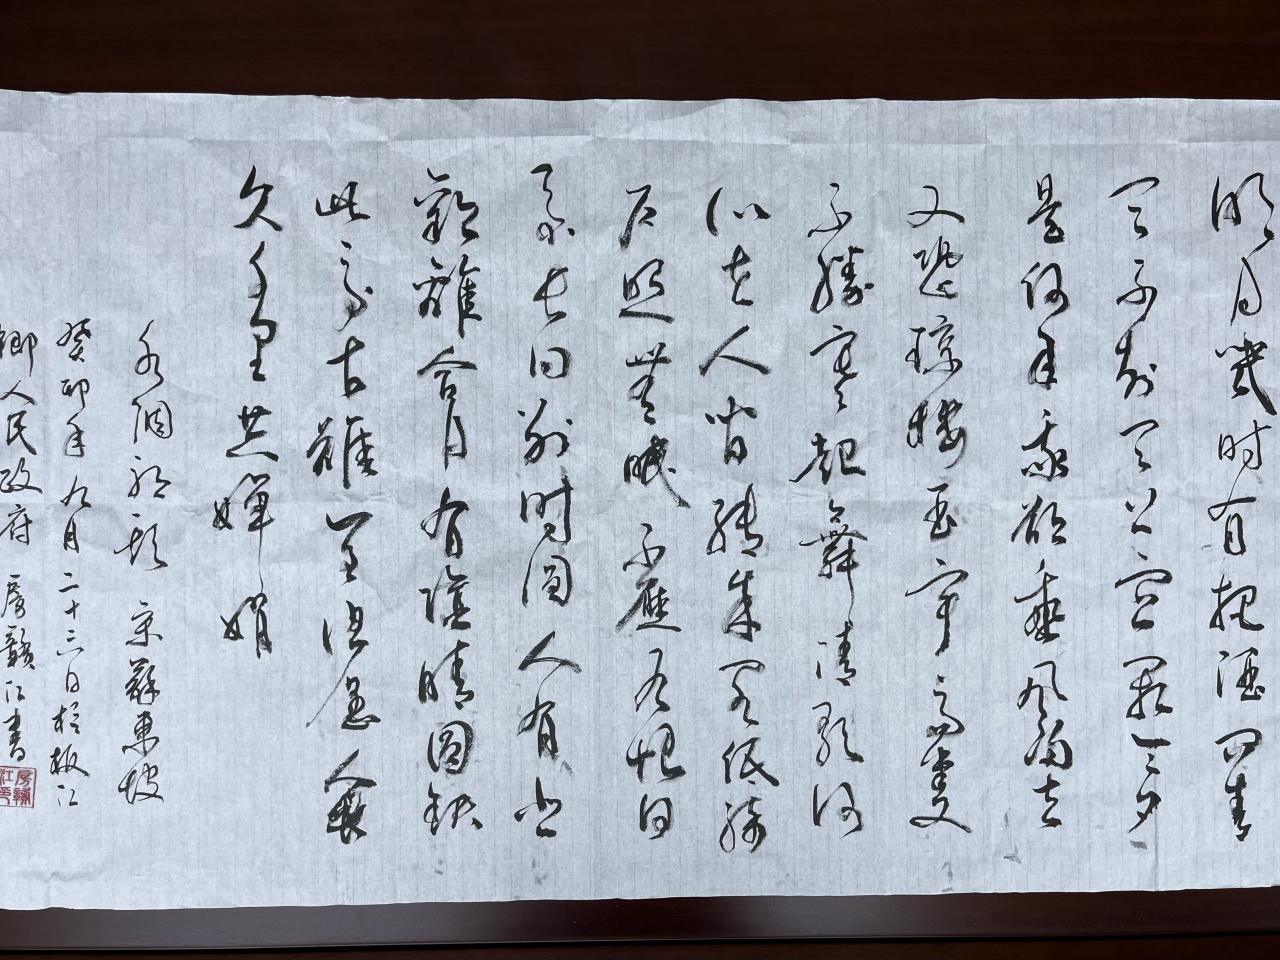 明月幾时有把酒问青
天不知天上宫阙今夕
是何年我欲乘风归去
又恐琼楼玉宇高处
不勝寒起舞清影何
似在人间转朱阁低绮
户照無眠不應有恨何
事长向别时圆人有悲
歡離合月有陰晴圆缺
此事古難全但愿人長
久千里共婵娟
水调歌头 宋蘇東坡
癸卯年九月二十六日於板江
鄉人民政府 房贛江書